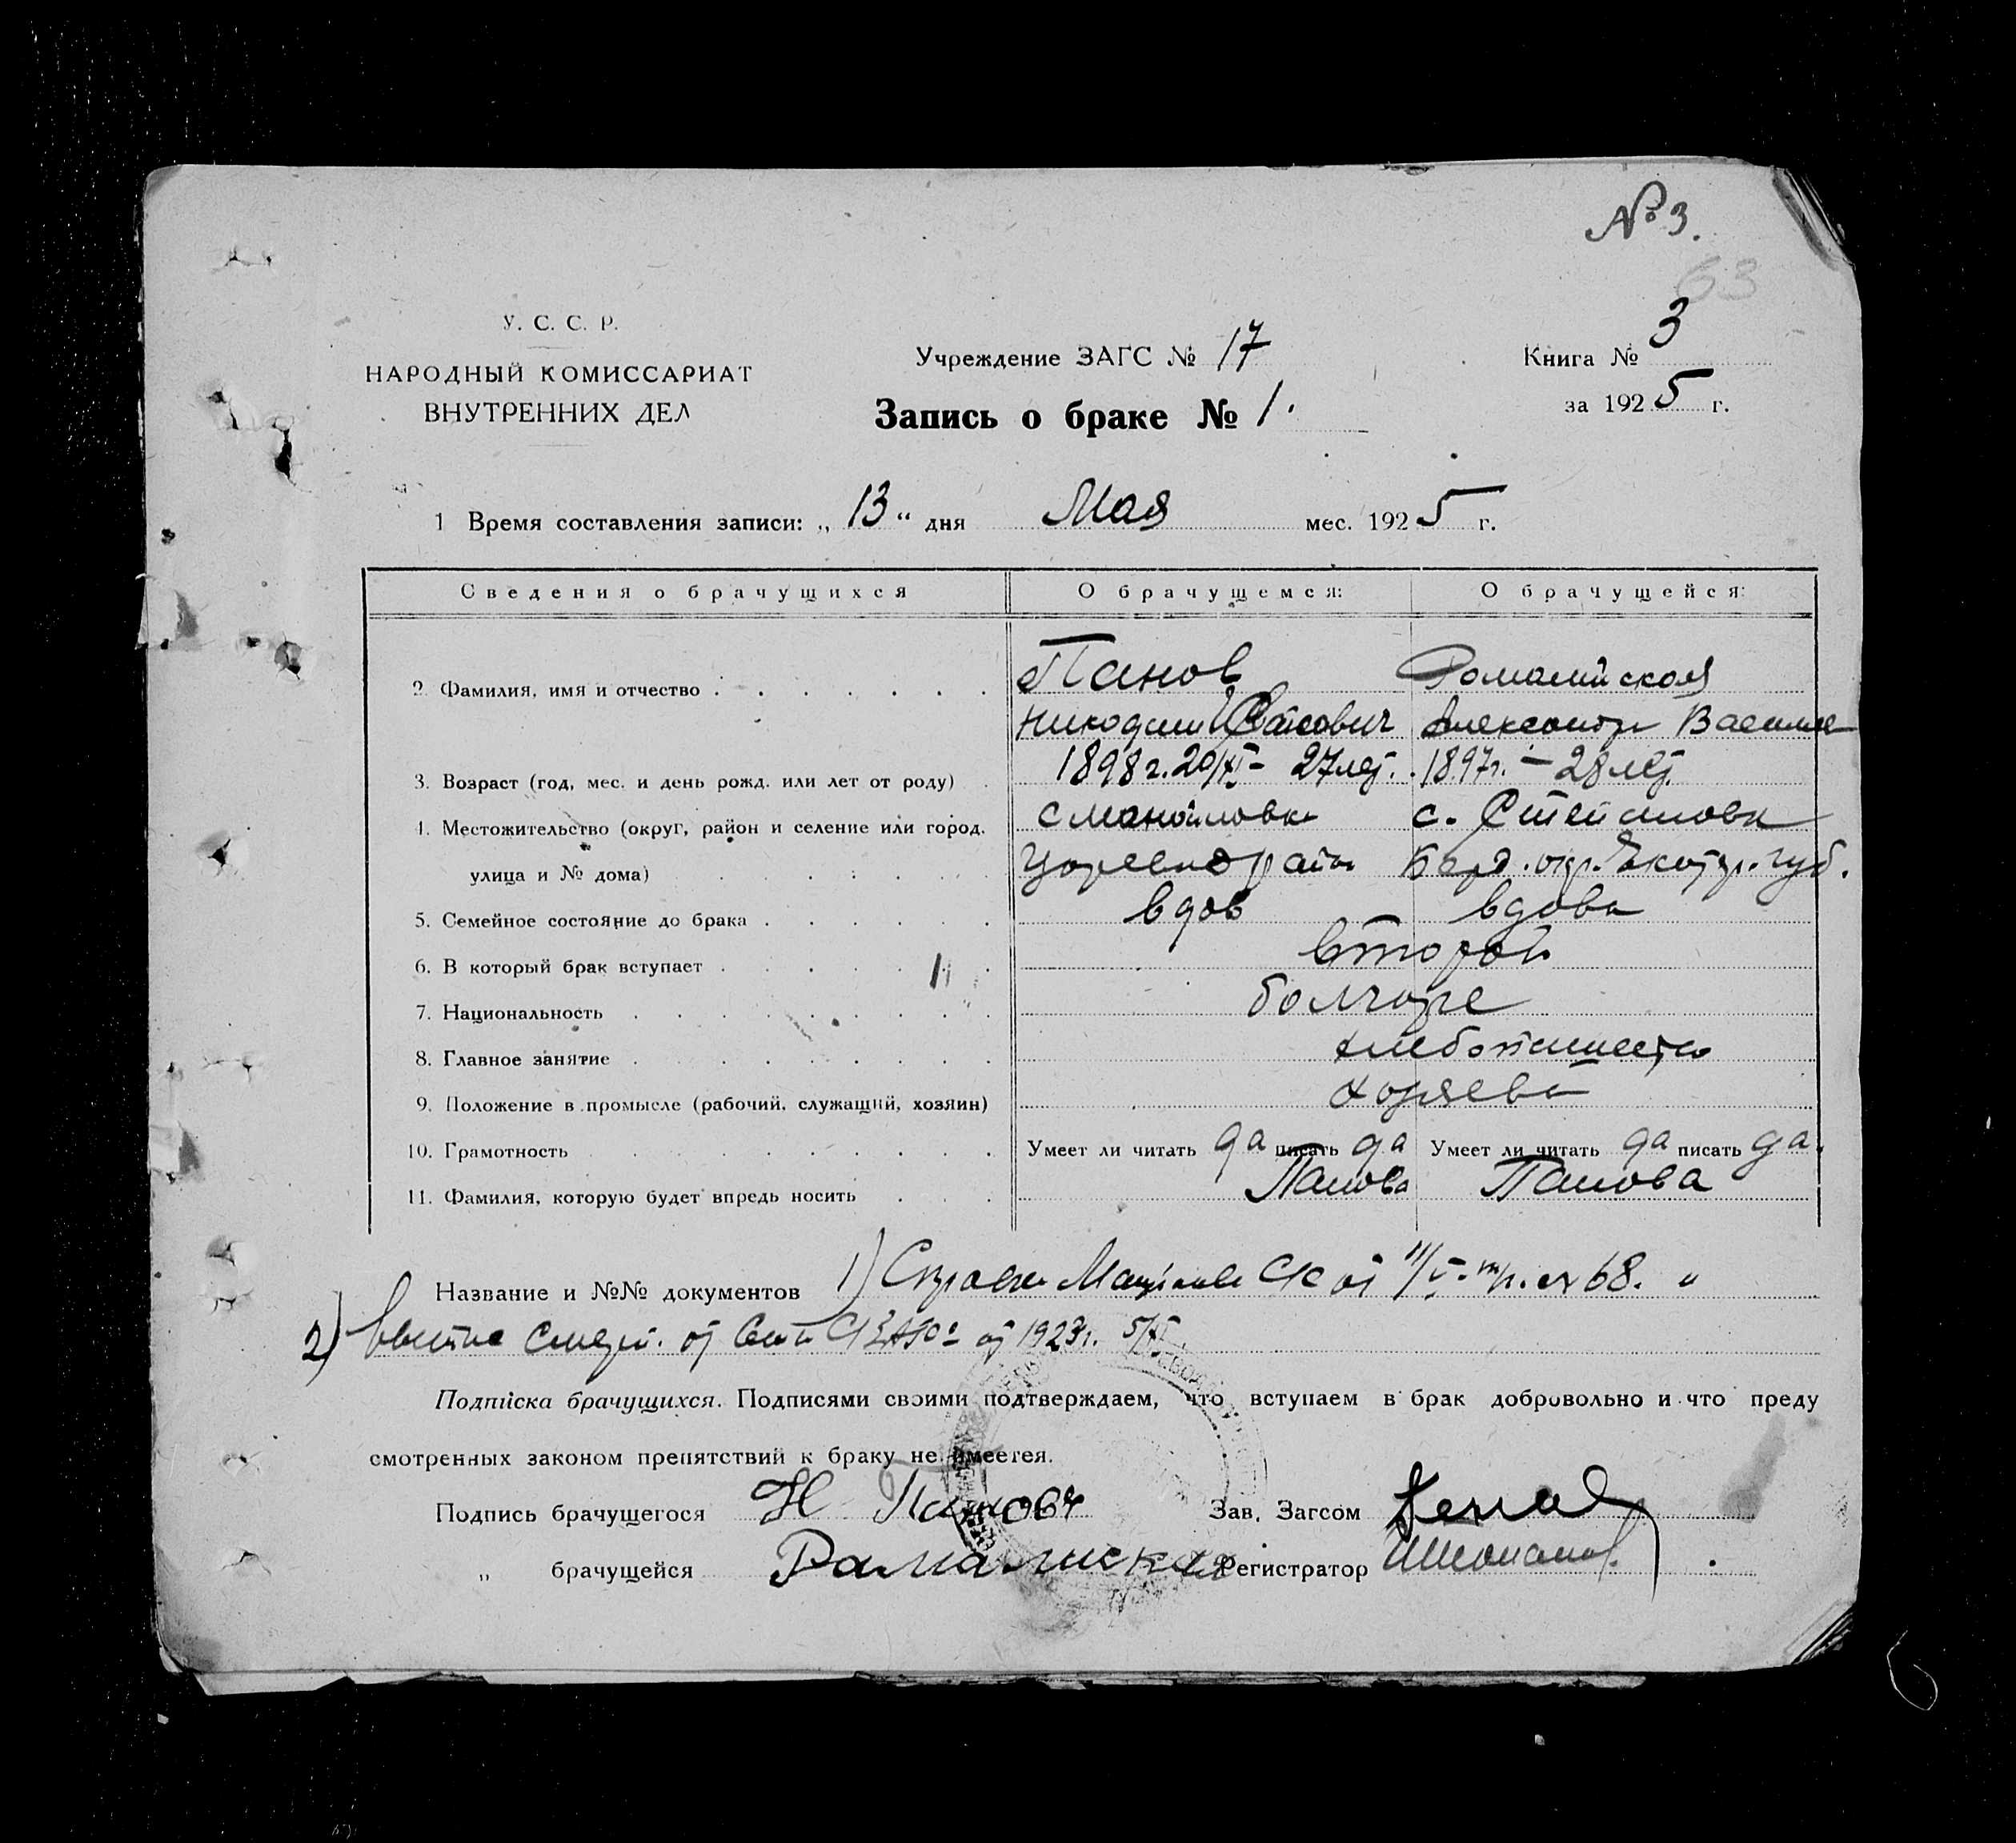 № 3.
63
У. С. С. Р.
НАРОДНЫЙ КОМИССАРИАТ
ВНУТРЕННИХ ДЕЛ
Учреждение ЗАГС № 17
Книга № 3
Запись о браке № 1.
за 1925 г.
1 Время составления записи: „ 13 “ дня Мая мес. 1925 г.
Сведения о брачущихся О брачущемся: О брачущейся:
2. Фамилия, имя и отчество Панов
Никодим
Александр
3. Возраст (год, мес. и день рожд. или лет от роду) 1898 г. 20/XI - 27 лет. 1897 г. - 28 лет
4. Местожительство (округ, район и селение или город, с. Степановка
улица и № дома) губ.
5. Семейное состояние до брака вдов вдова
6. В который брак вступает второй
7. Национальность болгаре
8. Главное занятие
9. Положение в промысле (рабочий, служащий, хозяин) хозяева
10. Грамотность Умеет ли читать да писать да Умеет ли читать да писать да.
11. Фамилия, которую будет впредь носить Панова Панова
Название и №№ документов 1) Справка от 68.
2) от от 1923 г.
Подписка брачущихся. Подписями своими подтверждаем, что вступаем в брак добровольно и что преду
смотренных законом препятствий к браку не имеется.
Подпись брачущегося Н Зав. Загсом
„ брачущейся Регистратор
6